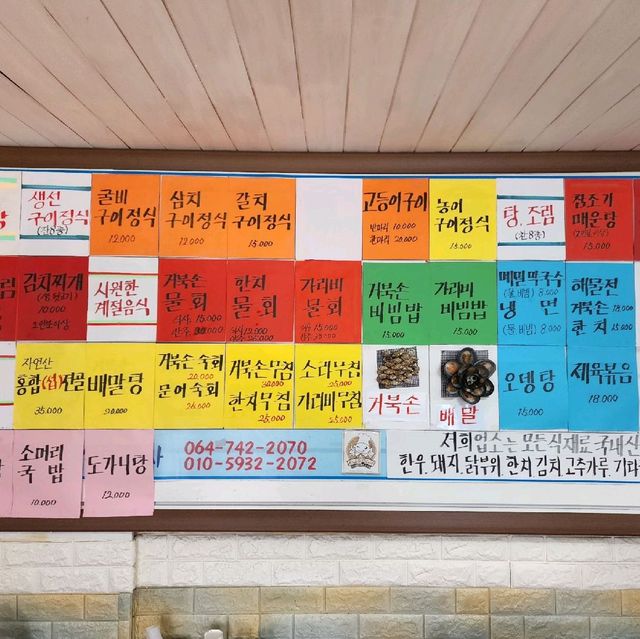 생선
구이정식
굴비
구이정식
12.000
삼치
구이정식
12.000
갈치
구이정식
15.000
고등어구이
반마리 10.000
한마리 20.000
농어
구이정식
15.000
탕, 조림
잡조기
매운탕
김치찌개
10.000
2인분이상
시원한
계절음식
거북손
물회
식사: 15.000
한치
물회
가리비
물회
거북손
비빔밥
15.000
가리비
비빔밥
15.000
메밀막국수
(물.비빔) 8.000
냉면
(물.비빔) 8.000
해물전
거북손 18.000
한치 15.000
자연산
홍합(섭)전골
35.000
배말탕
거북손숙회
20.000
문어숙회
거북손무침
30.000
한치무침
25.000
소라무침
25.000
가리비무침
25.000
거북손
배말
오뎅탕
15.000
제육볶음
18.000
소머리
국밥
10.000
도가니탕
12.000
064-742-2070
010-5932-2072
저희업소는 모든식재료 국내산
한우, 돼지, 닭부위, 한치, 김치, 고추가루, 기타